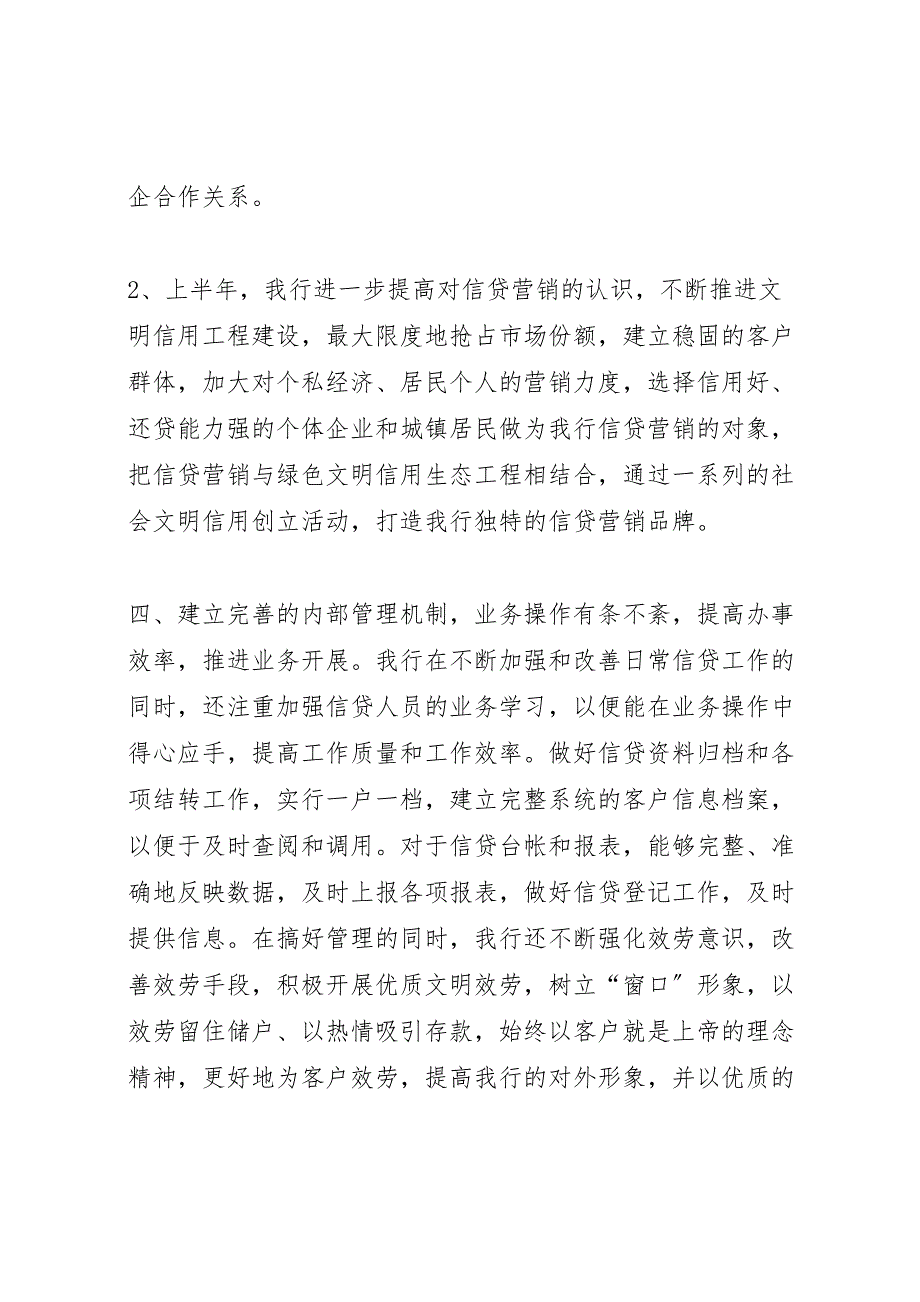 企合作关系。
2、上半年，我行进一步提高对信贷营销的认识，不断推进文
明信用工程建设，最大限度地抢占市场份额，建立稳固的客户
群体，加大对个私经济、居民个人的营销力度，选择信用好、
还贷能力强的个体企业和城镇居民做为我行信贷营销的对象，
把信贷营销与绿色文明信用生态工程相结合，通过一系列的社
会文明信用创立活动，打造我行独特的信贷营销品牌。
四、建立完善的内部管理机制，业务操作有条不紊，提高办事
效率，推进业务开展。我行在不断加强和改善日常信贷工作的
同时，还注重加强信贷人员的业务学习，以便能在业务操作中
得心应手，提高工作质量和工作效率。做好信贷资料归档和各
项结转工作，实行一户一档，建立完整系统的客户信息档案，
以便于及时查阅和调用。对于信贷台帐和报表，能够完整、准
确地反映数据，及时上报各项报表，做好信贷登记工作，及时
提供信息。在搞好管理的同时，我行还不断强化效劳意识，改
善效劳手段，积极开展优质文明效劳，树立“窗口〞形象，以
效劳留住储户、以热情吸引存款，始终以客户就是上帝的理念
精神，更好地为客户效劳，提高我行的对外形象，并以优质的